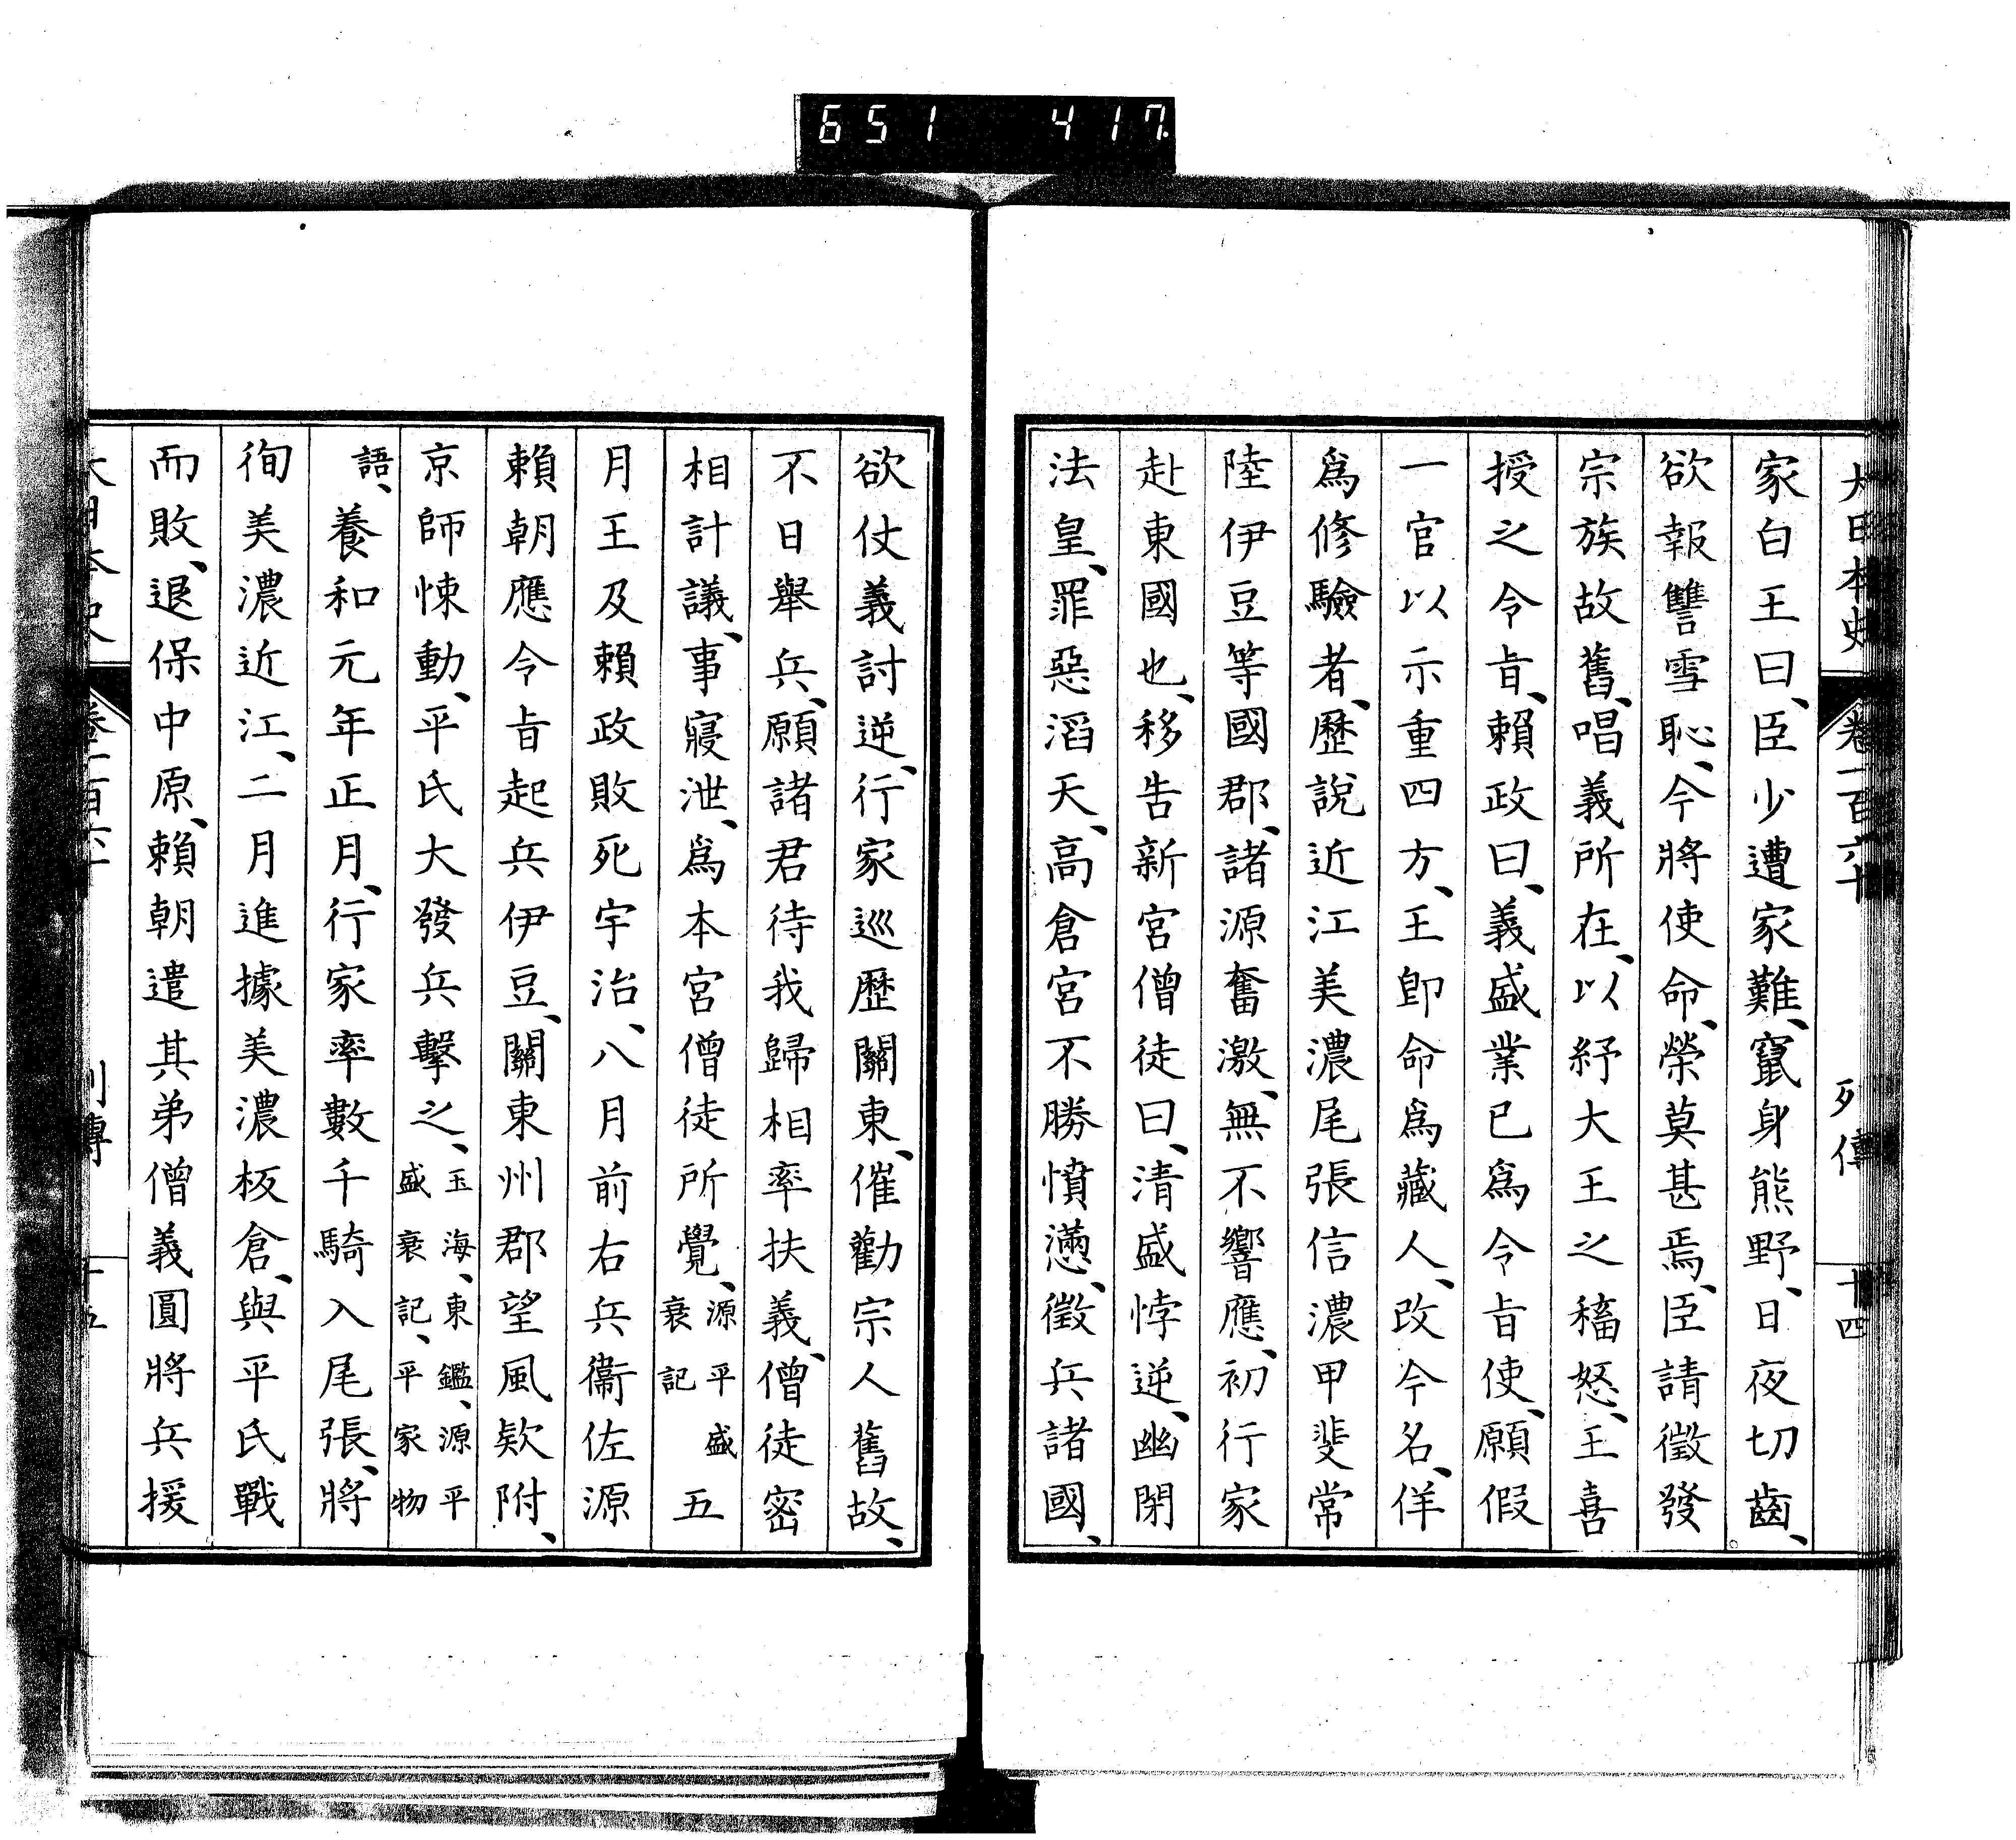 651 417
大日本史 卷一百六十 列傳 十四
家白王曰、臣少遭家難、竄身熊野、日夜切齒、
欲報讐雪恥、今將使命、榮莫甚焉、臣請徵發
宗族故舊、唱義所在、以紓大王之稸怒、王喜
授之令旨、賴政曰、義盛業已爲令旨使、願假
一官以示重四方、王卽命爲藏人、改今名、佯
爲修驗者、歷說近江美濃尾張信濃甲斐常
陸伊豆等國郡、諸源奮激、無不響應、初行家
赴東國也、移告新宮僧徒曰、清盛悖逆、幽閉
法皇、罪惡滔天、高倉宮不勝憤懣、徵兵諸國、
欲仗義討逆、行家巡歷關東、催勸宗人舊故、
不日舉兵、願諸君待我歸相率扶義、僧徒密
相計議、事寢泄、爲本宮僧徒所覺、源平盛衰記五
月王及賴政敗死宇治、八月前右兵衞佐源
賴朝應令旨起兵伊豆、關東州郡望風欵附、
京師悚動、平氏大發兵擊之、玉海、東鑑、源平盛衰記、平家物
語、養和元年正月、行家率數千騎入尾張、將
徇美濃近江、二月進據美濃板倉、與平氏戰
而敗、退保中原、賴朝遣其弟僧義圓將兵援
大日本史 卷一百六十 列傳 十五